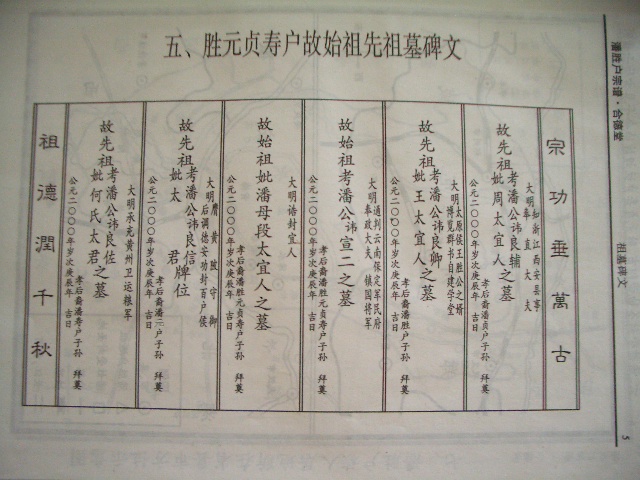 潘胜户宗谱·合德堂
祖墓碑文
5
五、胜元贞寿户故始祖先祖墓碑文
宗功垂萬古
大明知浙江西安县事
奉直大夫
故先祖考潘公讳良辅
妣周太宜人之墓
公元二〇〇〇年岁次庚辰年 吉日
孝后裔潘贞户子孙 拜奠
大明太原侯王胜公之婿
博览群书自建学堂
故先祖考潘公讳良卿
妣王太宜人之墓
公元二〇〇〇年岁次庚辰年 吉日
孝后裔潘胜户子孙 拜奠
大明通判云南保定军民府
奉政大夫 镇国将军
故始祖考潘公讳宣二之墓
公元二〇〇〇年岁次庚辰年 吉日
孝后裔潘胜元贞寿户子孙 拜奠
大明诰封宜人
故始祖妣潘母段太宜人之墓
公元二〇〇〇年岁次庚辰年 吉日
孝后裔潘胜元贞寿户子孙 拜奠
大明膺黄陂守御
后调德安功封百户侯
故先祖考潘公讳良信
妣太 君牌位
公元二〇〇〇年岁次庚辰年 吉日
孝后裔潘元户子孙 拜奠
大明承充黄州卫运粮军
故先祖考潘公讳良佐
妣何氏太君之墓
公元二〇〇〇年岁次庚辰年 吉日
孝后裔潘寿户子孙 拜奠
祖德潤千秋